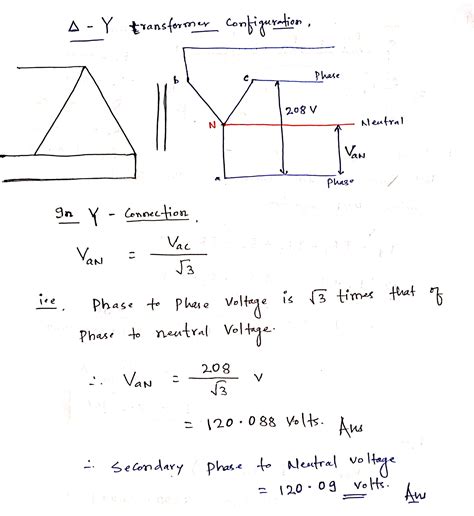 Δ - Y transformer Configuration.
b
c
Phase
208 V
N
Neutral
VaN
a
Phase
In Y - Connection.
VaN = Vac / √3
i.e. Phase to Phase Voltage is √3 times that of
Phase to neutral Voltage.
∴ VaN = 208 / √3 V
= 120.088 Volts. Ans
∴ Secondary Phase to Neutral voltage
= 120.09 volts. Ans